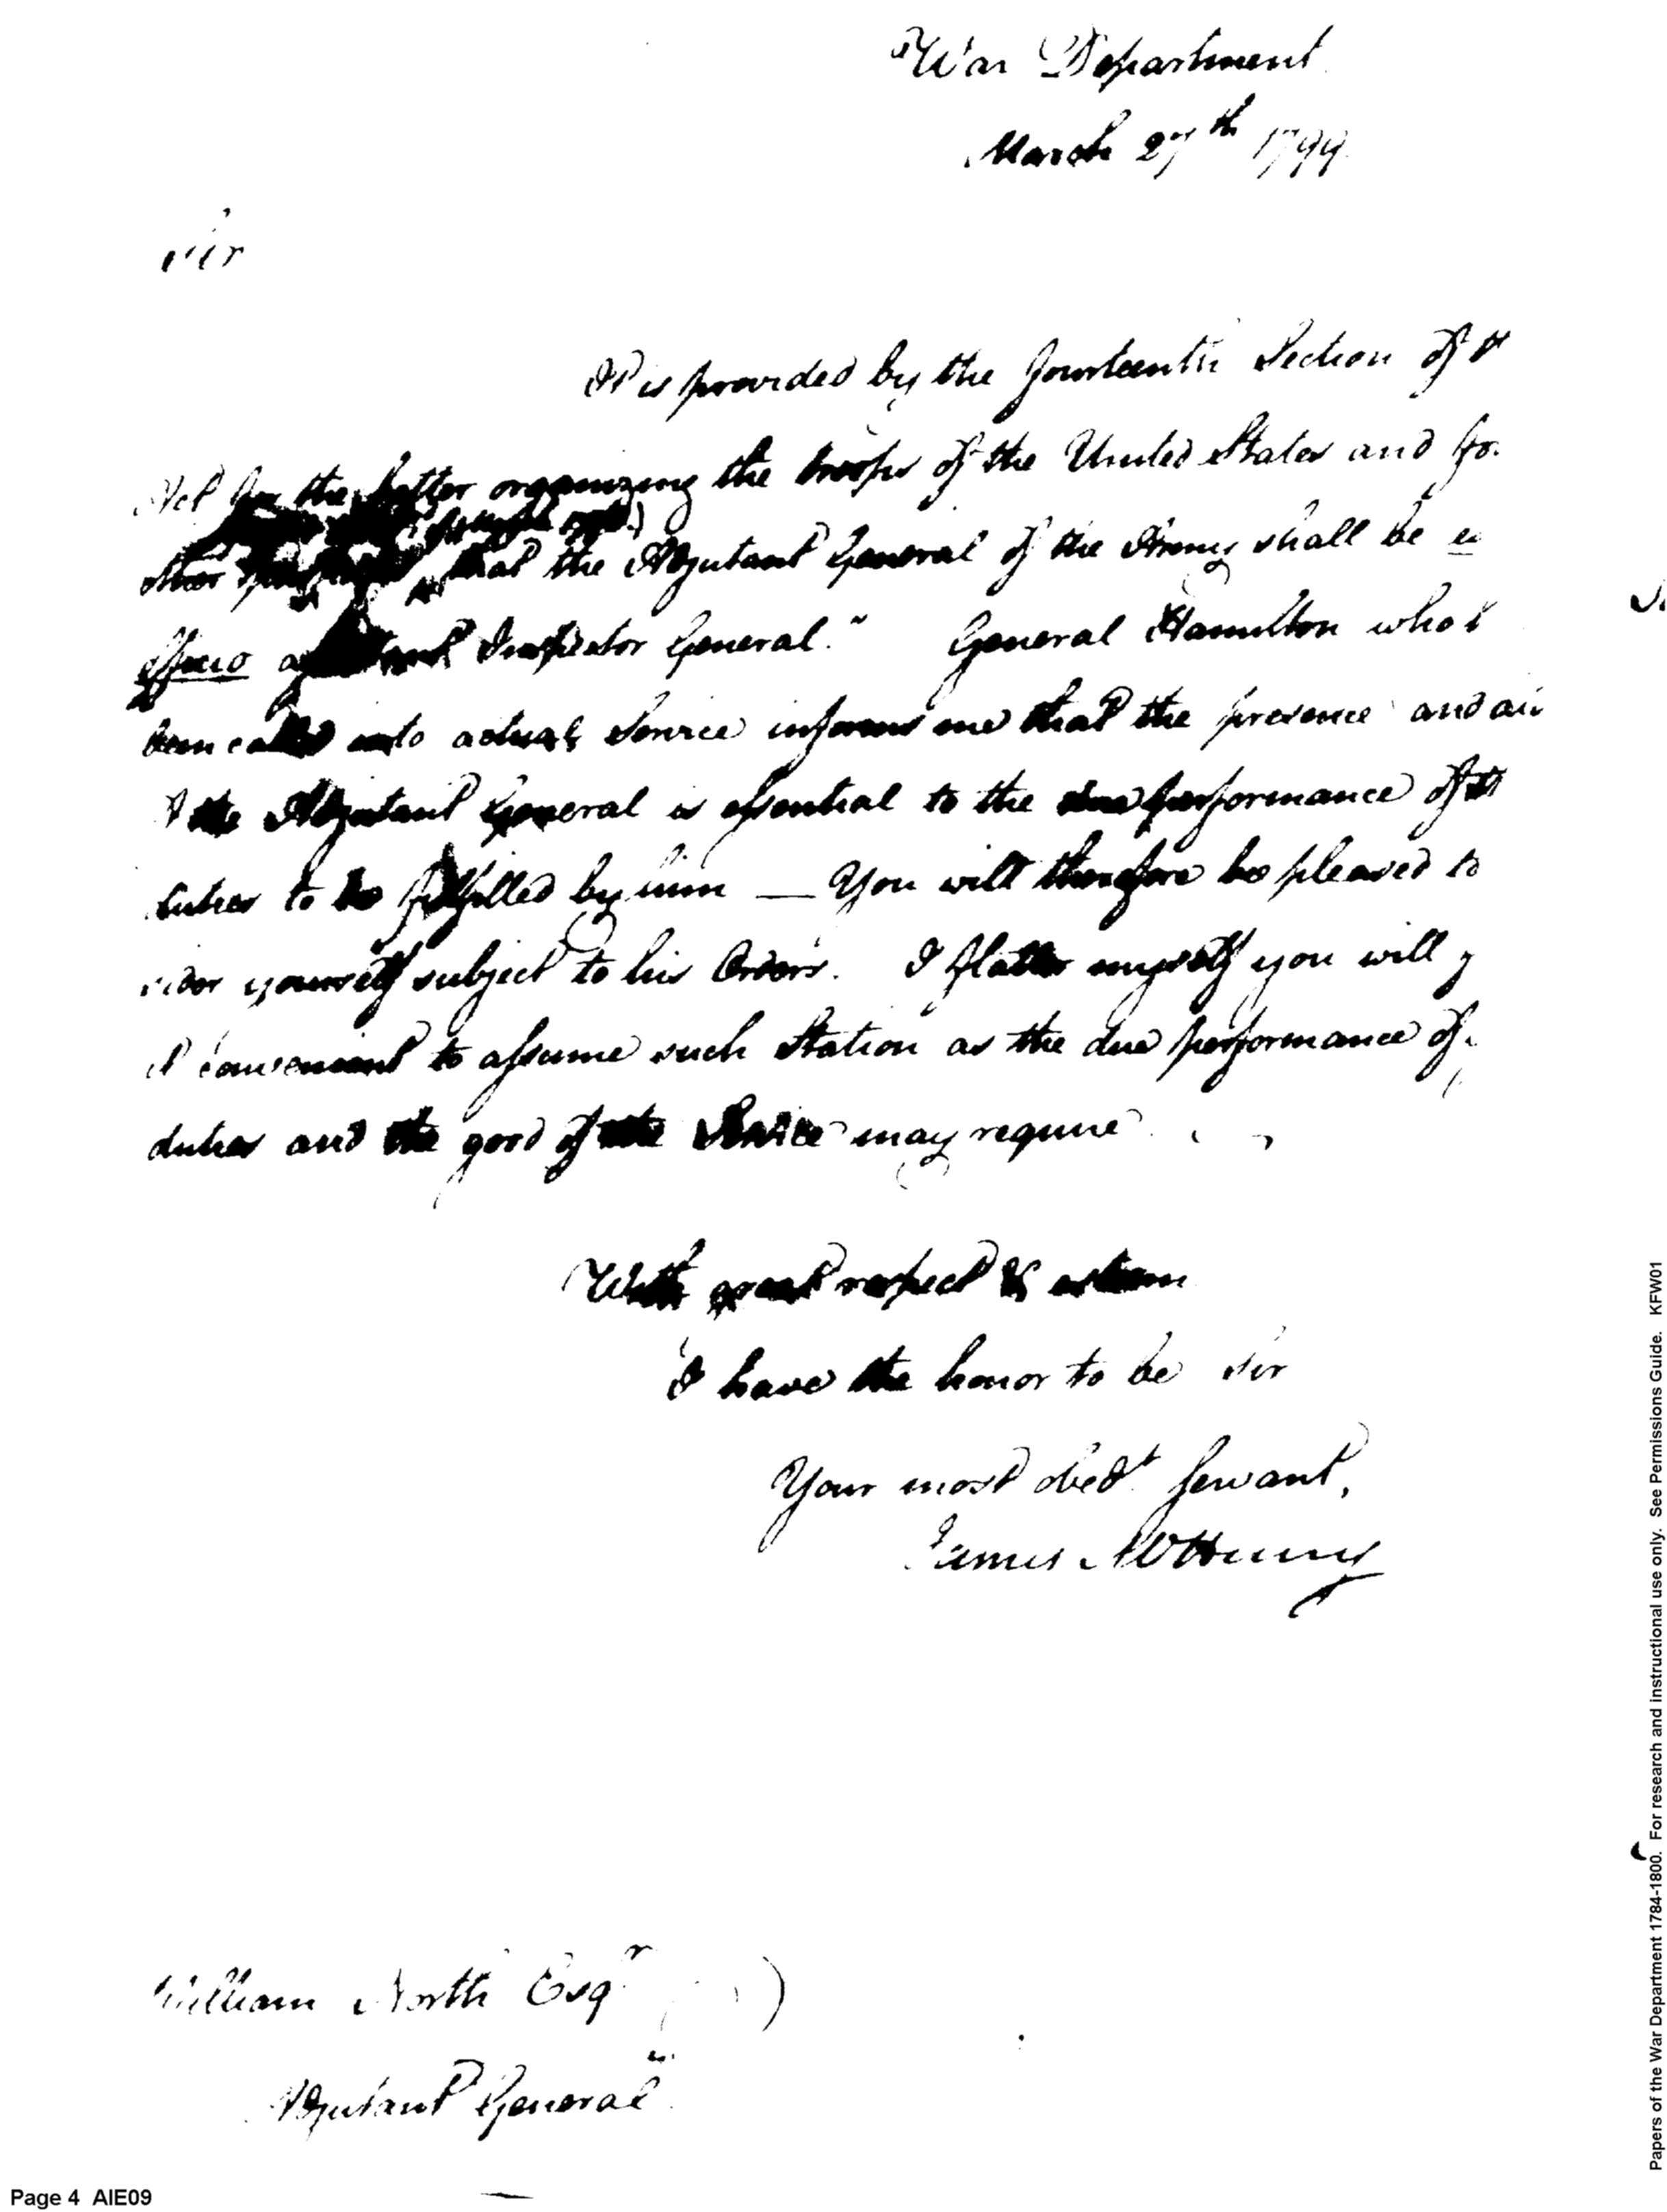 War Department
March 27th 1799
Sir
It is provided by the fourteenth Section of th
Act for the better organizing the troops of the United States and for
other purposes that the Adjutant General of the Army shall be ex
officio assistant Inspector General." General Hamilton who h
been called into actual Service informs me that the presence and aid
of the Adjutant General is essential to the due performance of th
duties to be fulfilled by him — You will therefore be pleased to
sider yourself subject to his Orders. I flatter myself you will f
it convenient to assume such Station as the due performance of
duties and the good of the Service may require
With great respect & esteem
I have the honor to be Sir
Your most obedt. Servant,
James McHenry
William North Esqr
Adjutant General
Page 4 AIE09
Papers of the War Department 1784-1800. For research and instructional use only. See Permissions Guide. KFW01